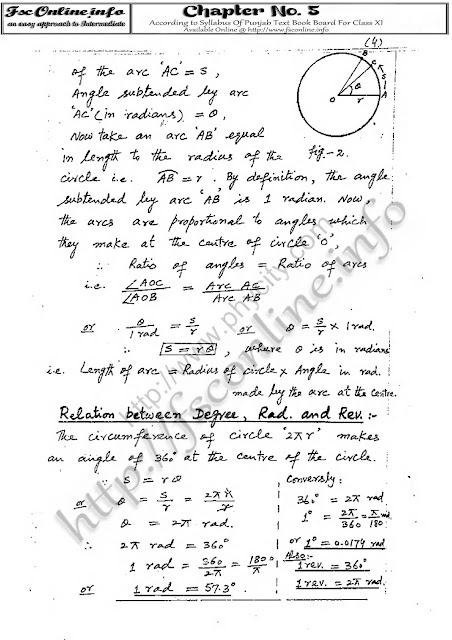 Fsc Online.info
an easy approach to Intermediate
Chapter No. 5
According to Syllabus Of Punjab Text Book Board For Class XI
Available Online @ http://www.fsconline.info
(4)
of the arc 'AC' = S,
Angle subtended by arc
'AC' (in radians) = θ,
Now take an arc 'AB' equal
in length to the radius of the
circle i.e. AB = r. By definition, the angle
subtended by arc 'AB' is 1 radian. Now,
the arcs are proportional to angles which
they make at the centre of circle 'O',
B
C
S
A
O
θ
r
Fig-2.
∴ Ratio of angles = Ratio of arcs
i.e. ∠AOC / ∠AOB = Arc AC / Arc AB
or θ / 1 rad = S / r or θ = S/r × 1 rad.
∴ S = rθ, where θ is in radians
i.e. Length of arc = Radius of circle × Angle in rad.
made by the arc at the centre.
Relation between Degree, Rad. and Rev. :-
The circumference of circle '2πr' makes
an angle of 360° at the centre of the circle.
∴ S = rθ
or θ = S/r = 2πr/r
θ = 2π rad.
∴ 2π rad = 360°
1 rad = 360/2π = 180°/π
or 1 rad = 57.3°
Conversly:
360° = 2π rad
1° = 2π/360 = π/180 rad
or 1° = 0.0174 rad
Also:-
1 rev. = 360°
1 rev. = 2π rad.
http://www.phycity.com
http://fsconline.info